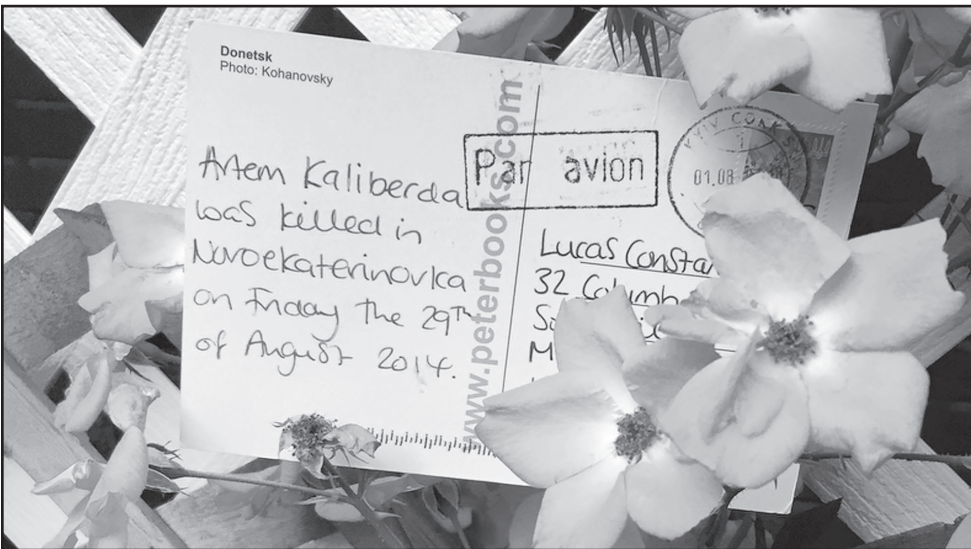 Donetsk
Photo: Kohanovsky
Artem Kaliberda
was killed in
Novoekaterinovka
on Friday the 29th
of August 2014.
www.peterbooks.com
Par avion
01.08
Lucas
32